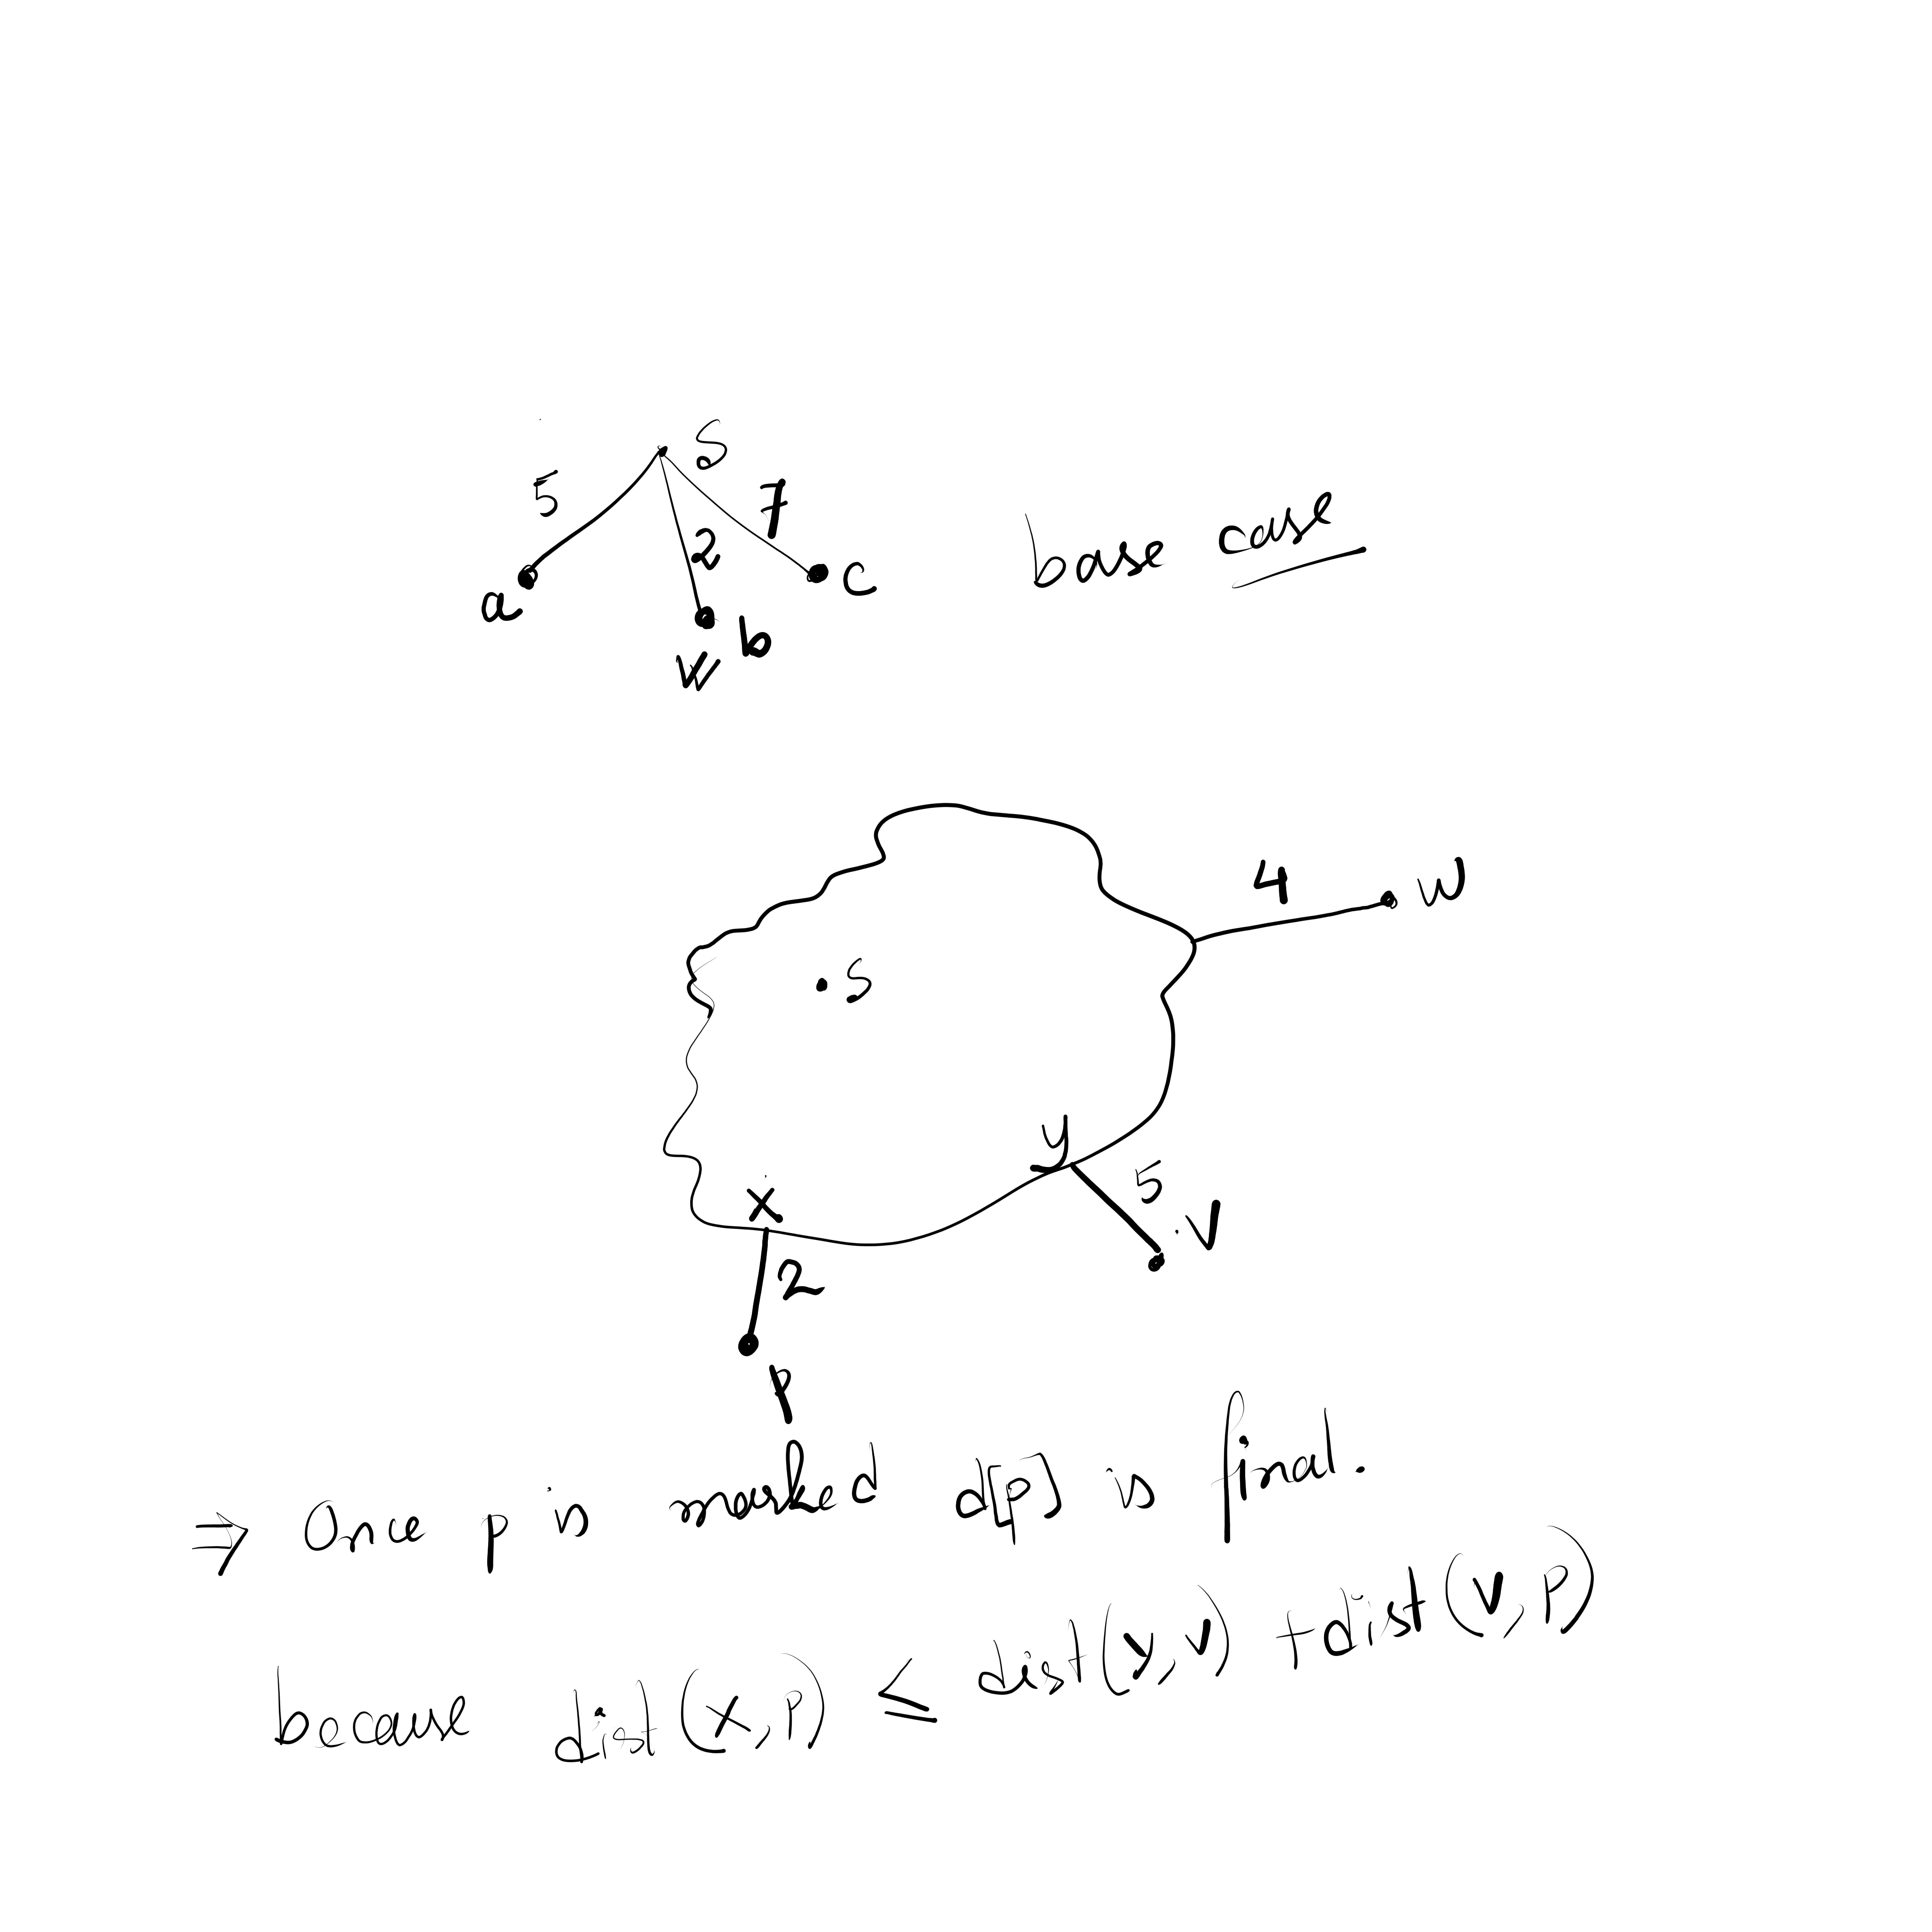 S
5
7
2
base case
a
c
b
w
4
u
s
y
x
5
v
2
p
⇒ Once p is marked d[p] is final.
because dist(x, p) ≤ dist(y, v) + dist(v, p)